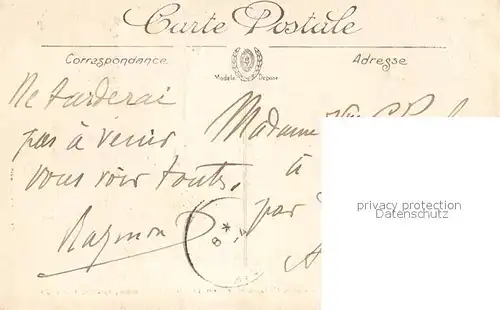 Carte Postale
Correspondance
Adresse
Modèle Déposé
Ne tarderai
pas à venir
vous voir toutes.
Raymon
Madame
à
par
privacy protection
Datenschutz